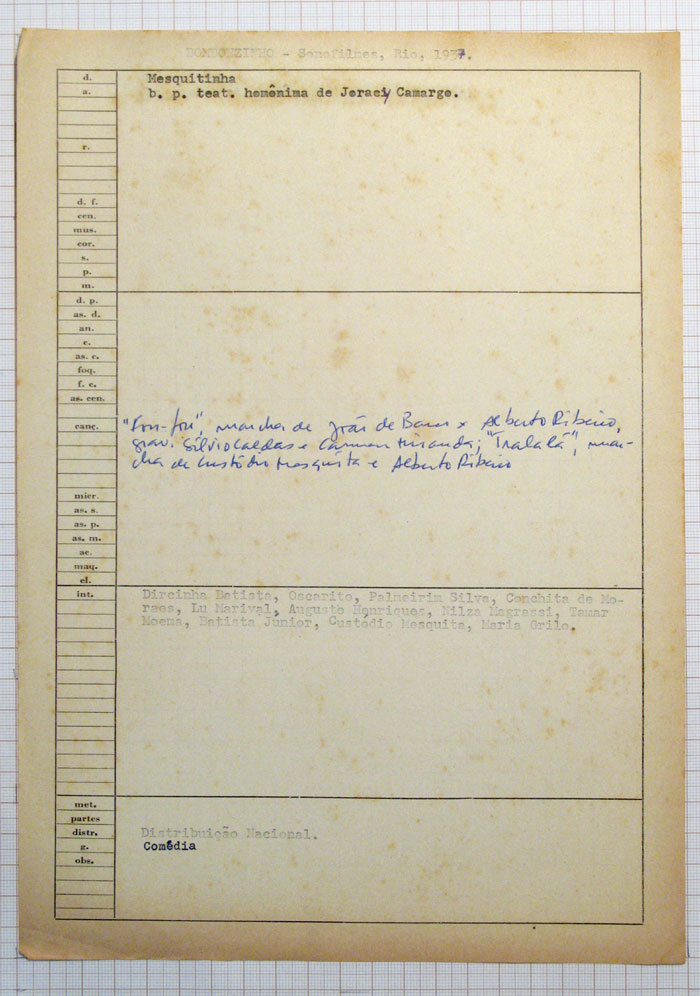 BOMBONZINHO - Sonofilmes, Rio, 1937.
d. Mesquitinha
a. b. p. teat. homônima de Joracy Camargo.
r.
d. f.
cen.
mus.
cor.
s.
p.
m.
d. p.
as. d.
an.
e.
as. c.
foq.
f. c.
as. cen.
canç. "Fon-fon", marcha de João de Barro e Alberto Ribeiro,
grav. Silvio Caldas e Carmen Miranda; "Tralalá", mar-
cha de Custódio Mesquita e Alberto Ribeiro
micr.
as. s.
as. p.
as. m.
ac.
maq.
el.
int. Dircinha Batista, Oscarito, Palmeirim Silva, Conchita de Mo-
raes, Lu Marival, Augusto Henriques, Nilza Magrassi, Tamar
Moema, Batista Junior, Custodio Mesquita, Maria Grilo.
met.
partes
distr. Distribuição Nacional.
g. Comédia
obs.